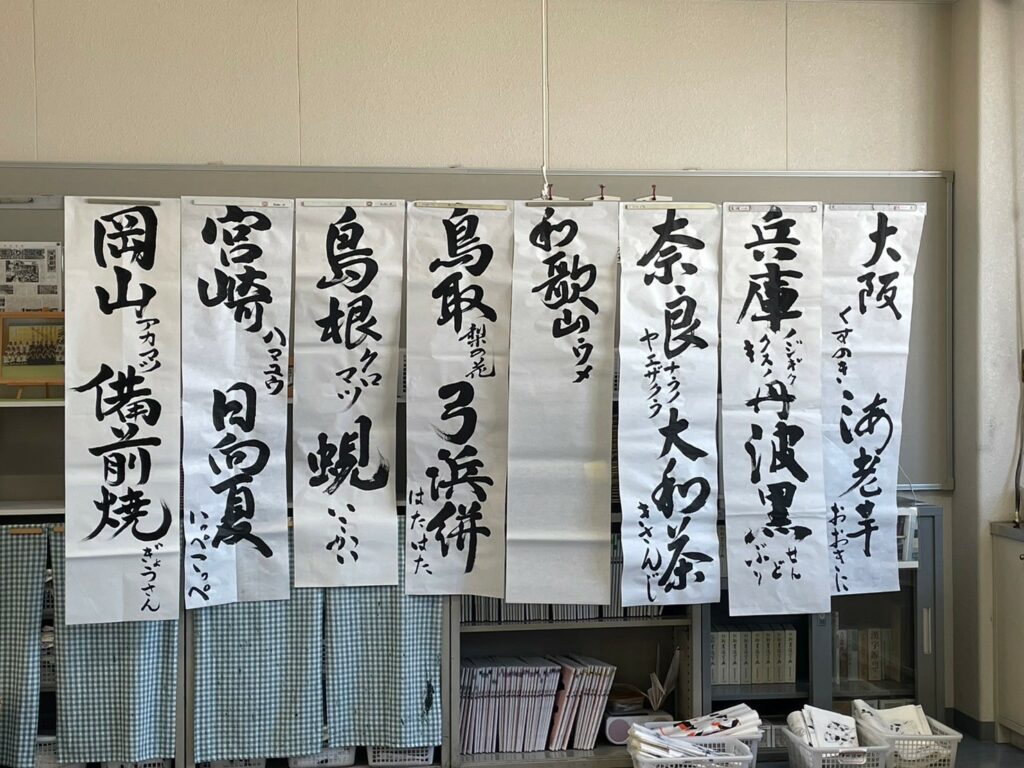 大阪
くすのき
海老芋
おおきに
兵庫
ノジギク
クスノキ
丹波黒
せんど
ぶり
奈良
ナラノ
ヤエザクラ
大和茶
きさんじ
和歌山
ウメ
鳥取
梨の花
弓浜絣
はたはた
島根
クロ
マツ
蜆
宮崎
ハマユウ
日向夏
いっぺこっぺ
岡山
アカマツ
備前焼
ぎょうさん